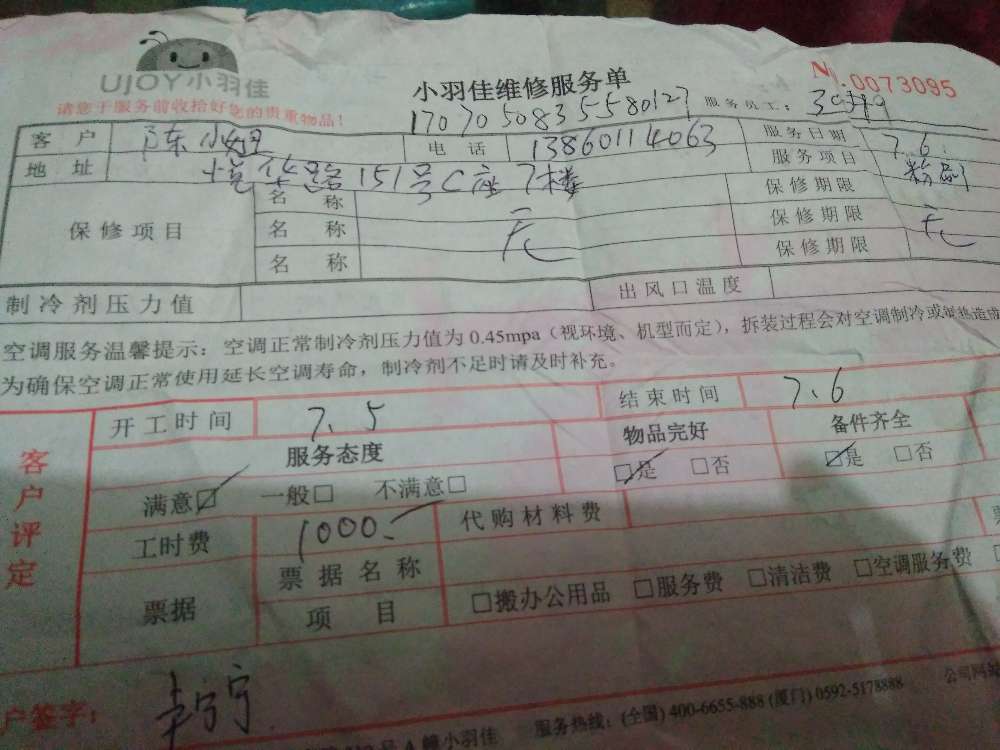 UJOY小羽佳
小羽佳维修服务单
№.0073095
请您于服务前收拾好您的贵重物品!
17070508355580127
服务员工:
客户 陈小姐 电话 13860114063 服务日期 7.6
地址 悦华路151号C座7楼 服务项目 粉刷
保修项目 名称 无 保修期限 无
名称 保修期限
名称 保修期限
制冷剂压力值 出风口温度
空调服务温馨提示:空调正常制冷剂压力值为0.45mpa(视环境、机型而定),拆装过程会对空调制冷或制热造成
为确保空调正常使用延长空调寿命,制冷剂不足时请及时补充。
客户评定
开工时间 7、5 结束时间 7、6
服务态度 物品完好 备件齐全
满意☑ 一般□ 不满意□ ☑是 □否 ☑是 □否
工时费 1000、 代购材料费
票据 票据名称
项目 □搬办公用品 □服务费 □清洁费 □空调服务费
户签字:
号A幢小羽佳 服务热线:(全国)400-6655-888(厦门)0592-5178888 公司网